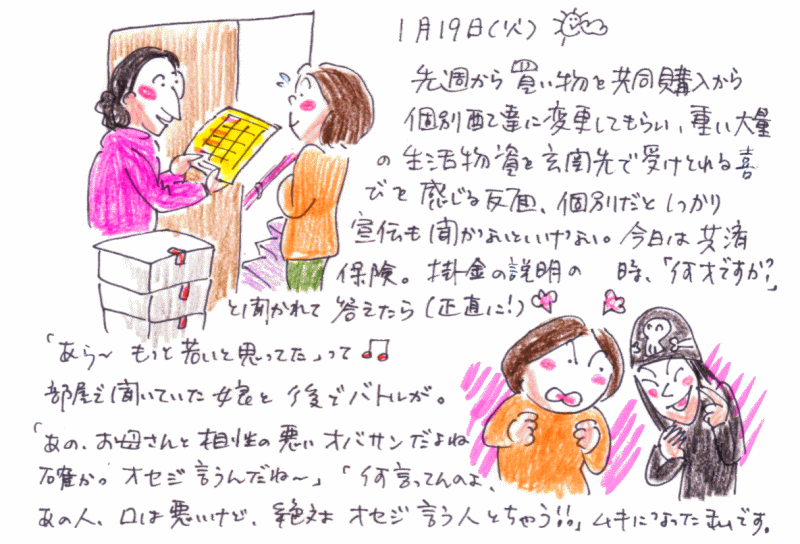 1月19日(火)
先週から買い物を共同購入から
個別配達に変更してもらい、重い大量
の生活物資を玄関先で受けとれる喜
びを感じる反面、個別だとしっかり
宣伝も聞かないといけない。今日は共済
保険。掛金の説明の 時、「何才ですか?」
と聞かれて答えたら(正直に!)
「あら〜もっと若いと思ってた」って♫
部屋で聞いていた娘と後でバトルが。
「あの、お母さんと相性の悪いオバサンだよね
確か。オセジ言うんだね〜」「何言ってんのよ、
あの人、口は悪いけど、絶対オセジ言う人とちゃう!!」ムキになった私です。